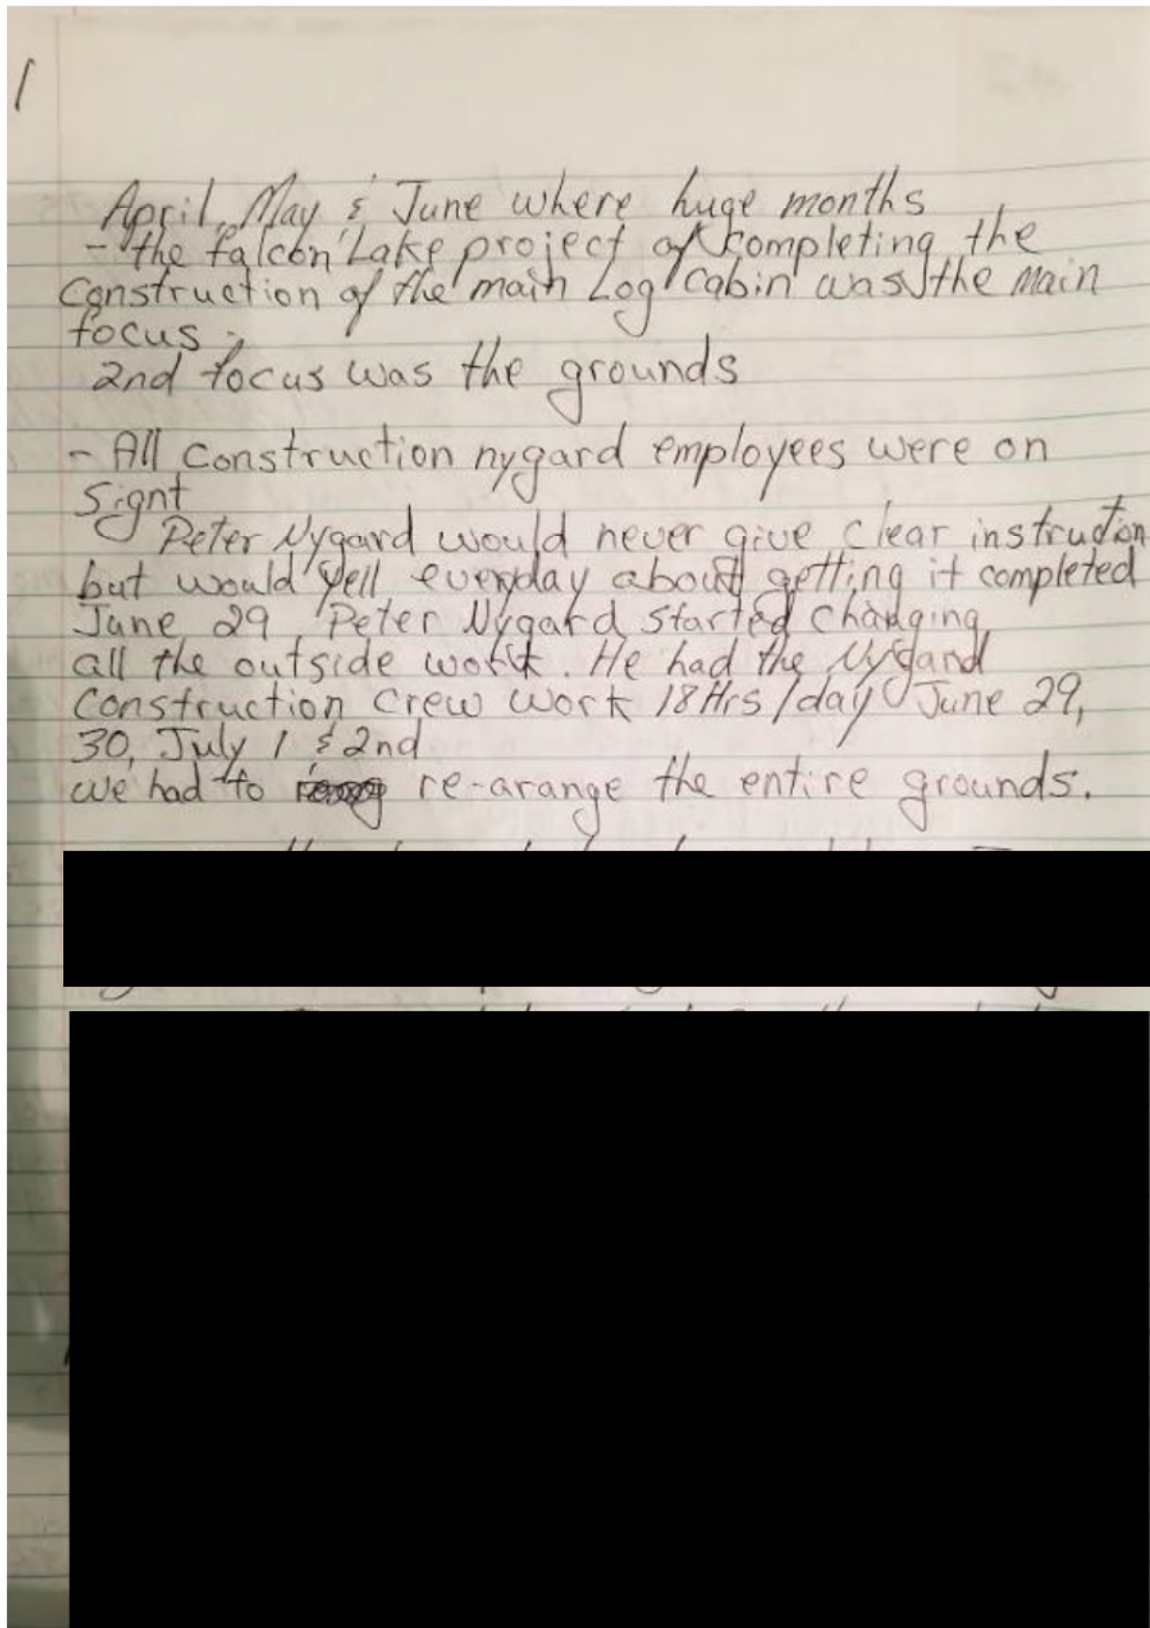 1
April, May & June where huge months
- the falcon Lake project of completing the
Construction of the main Log cabin was the main
focus.
2nd focus was the grounds
- All construction nygard employees were on
Signt
Peter Nygard would never give clear instruction
but would yell everyday about getting it completed
June 29, Peter Nygard started changing
all the outside work. He had the Nygard
Construction Crew work 18Hrs/day June 29,
30, July 1 & 2nd
we had to re-arange the entire grounds.